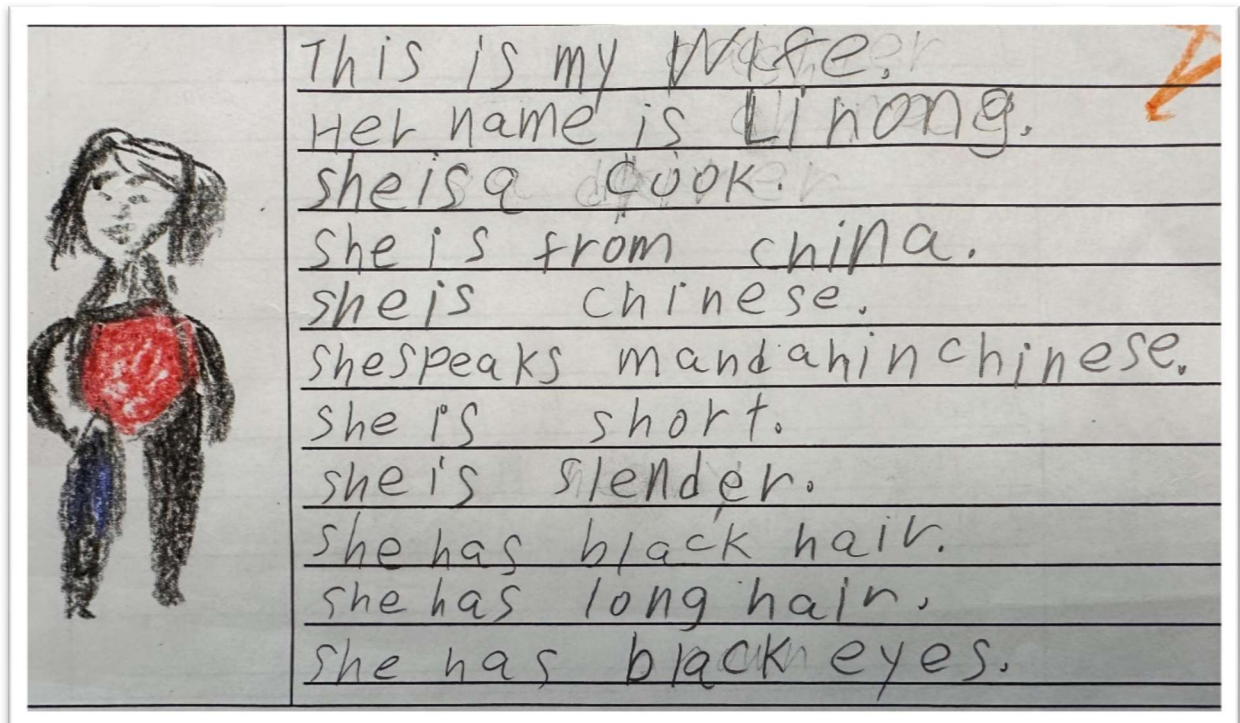 This is my Wife.
Her name is Li hong.
she is a cook.
she is from china.
she is chinese.
she speaks mandahin chinese.
she is short.
she is slender.
she has black hair.
she has long hair.
she has black eyes.